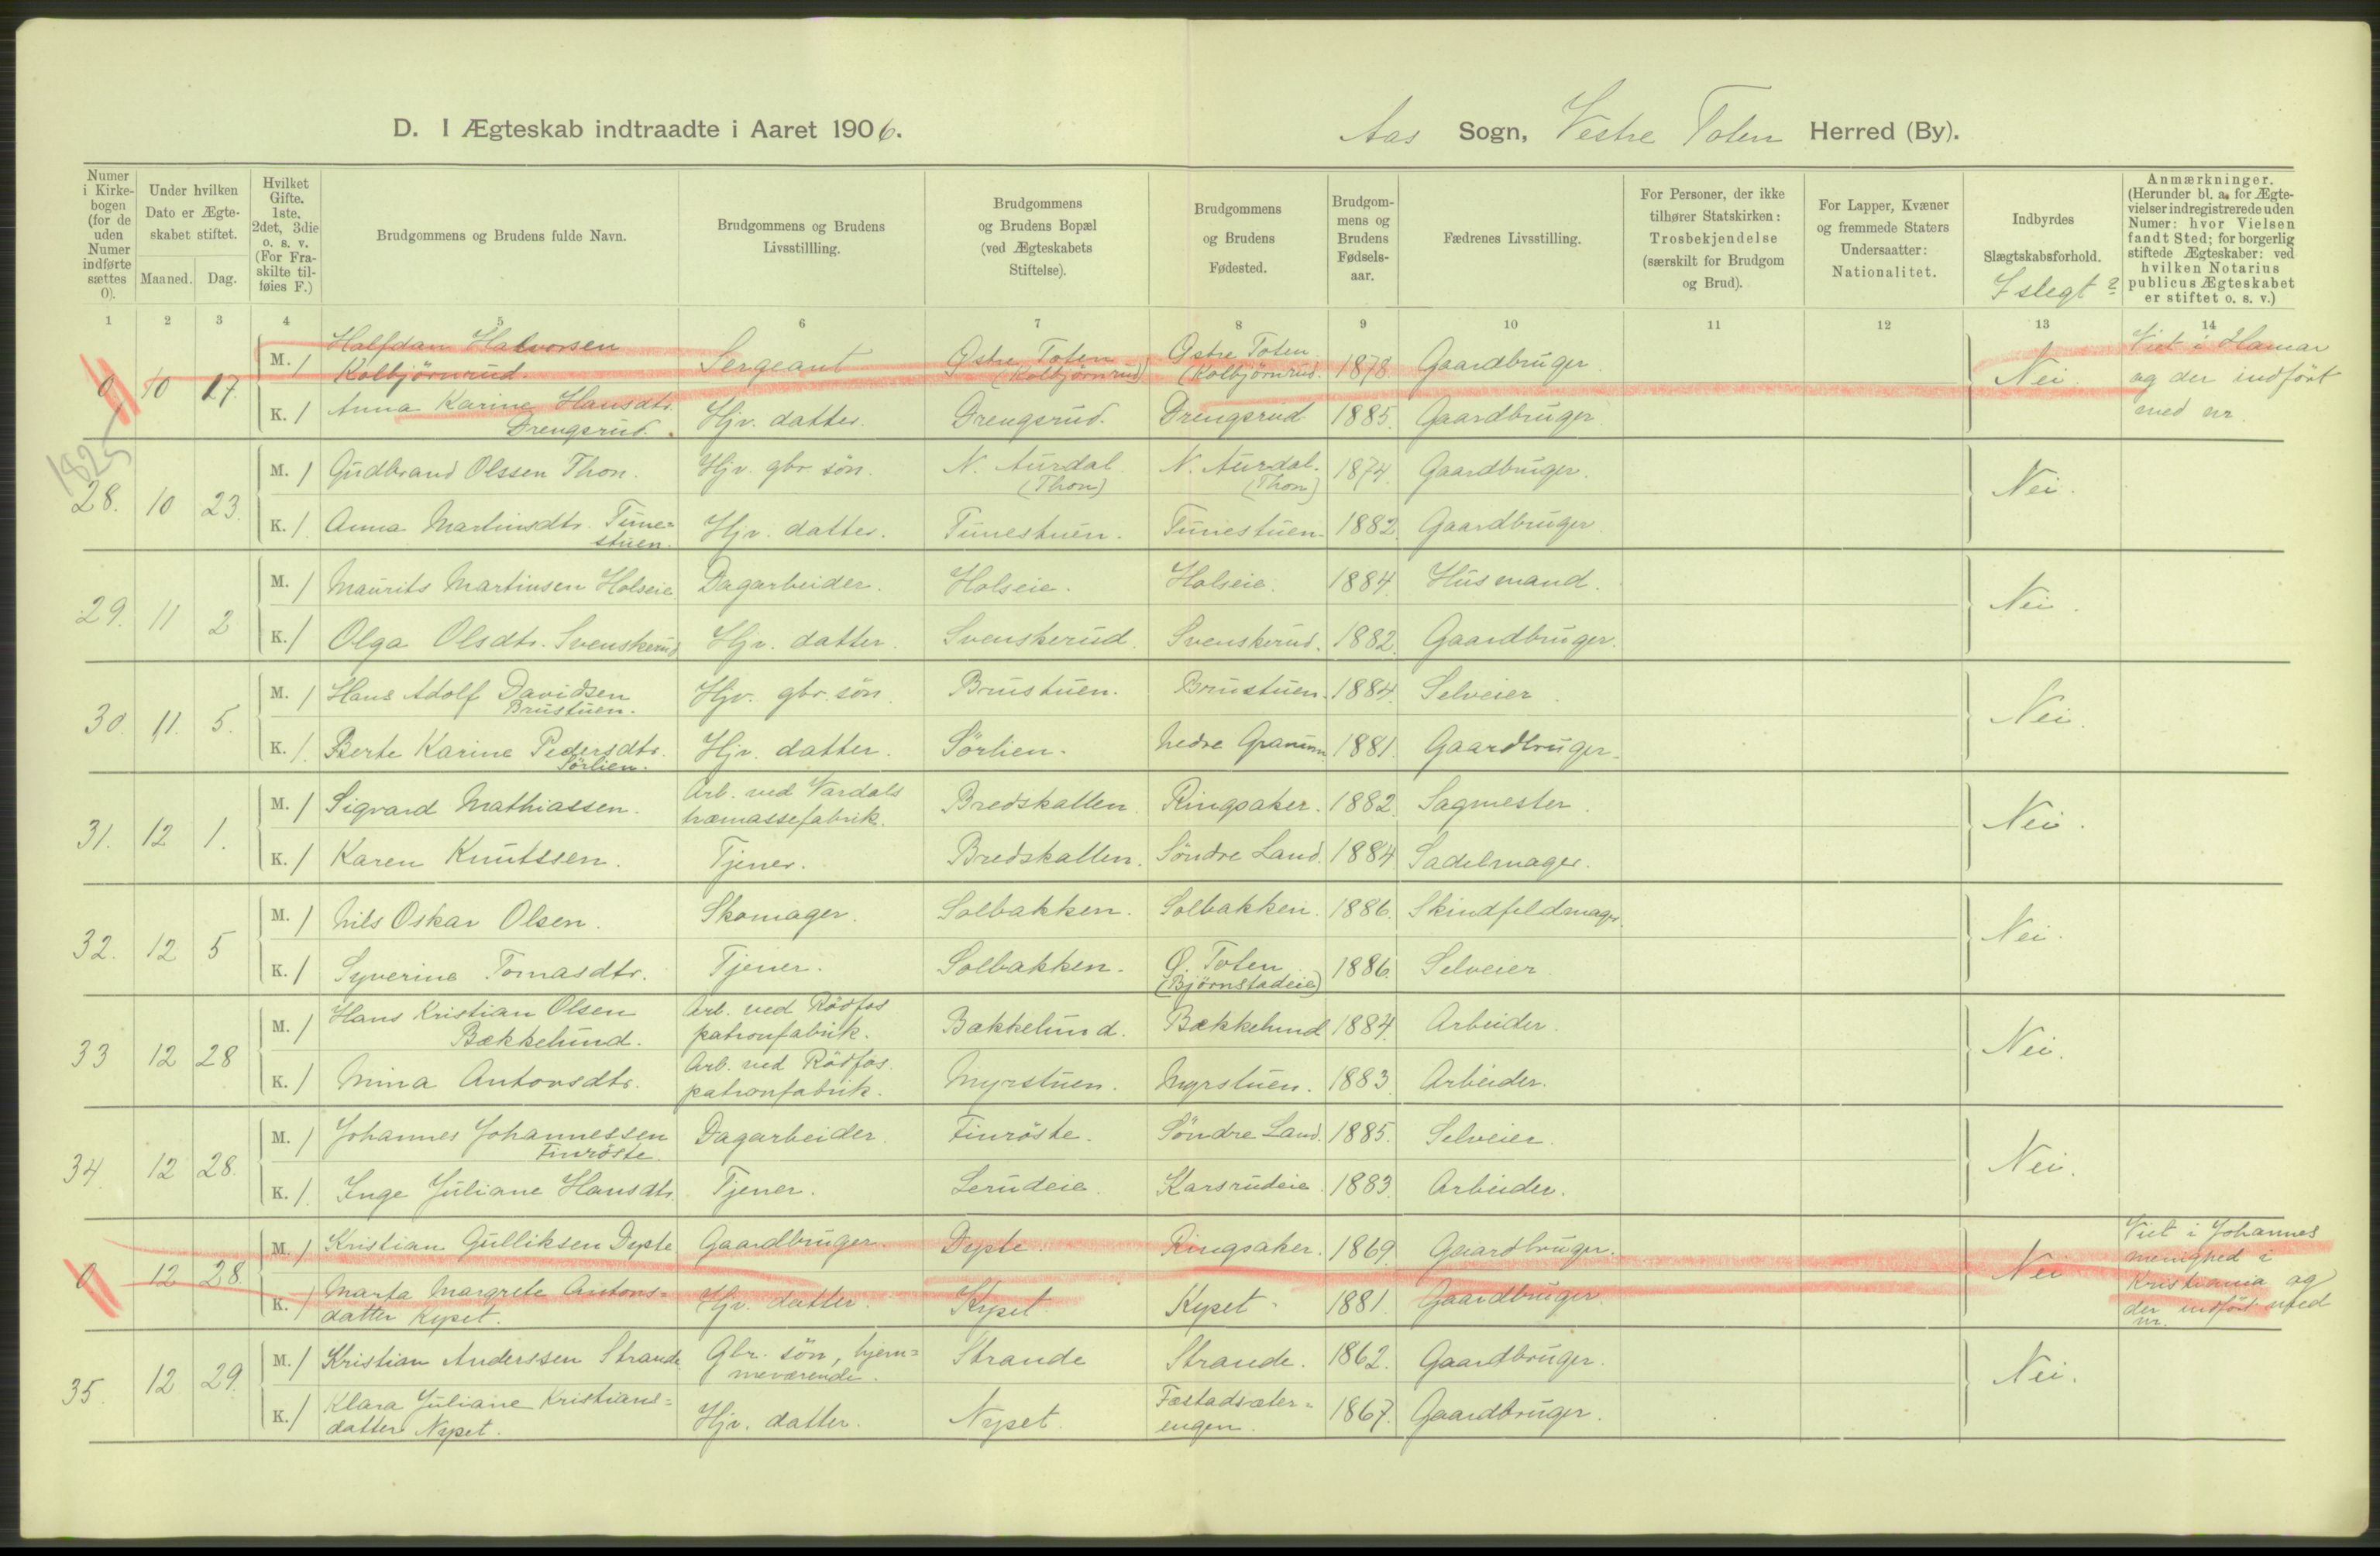 D. I Ægteskab indtraadte i Aaret 1906.
Aas Sogn, Vestre Toten Herred (By).
Numer i Kirkebogen (for de uden Numer indførte sættes 0).
Under hvilken Dato er Ægteskabet stiftet.
Maaned. Dag.
Hvilket Gifte. 1ste, 2det, 3die o. s. v. (For Fraskilte tilføies F.)
Brudgommens og Brudens fulde Navn.
Brudgommens og Brudens Livsstillling.
Brudgommens og Brudens Bopæl (ved Ægteskabets Stiftelse).
Brudgommens og Brudens Fødested.
Brudgommens og Brudens Fødselsaar.
Fædrenes Livsstilling.
For Personer, der ikke tilhører Statskirken: Trosbekjendelse (særskilt for Brudgom og Brud).
For Lapper, Kvæner og fremmede Staters Undersaatter: Nationalitet.
Indbyrdes Slægtskabsforhold.
I slegt?
Anmærkninger. (Herunder bl. a. for Ægtevielser indregistrerede uden Numer: hvor Vielsen fandt Sted; for borgerlig stiftede Ægteskaber: ved hvilken Notarius publicus Ægteskabet er stiftet o. s. v.)
1 2 3 4 5 6 7 8 9 10 11 12 13 14
0 10 17. M. 1 Halfdan Halvorsen Kolbjörnrud. Sergeant Østre Toten (Kolbjörnrud) Østre Toten (Kolbjörnrud. 1878 Gaardbruger Nei. Viet i Hamar og der indført med nr.
K. 1 Anna Karine Hansdtr. Drengsrud. Hjv. datter. Drengsrud. Drengsrud 1885. Gaardbruger
1825
28. 10 23. M. 1 Gudbrand Olssen Thon. Hjv. gbr. sön. N. Aurdal. (Thon) N. Aurdal. (Thon) 1874. Gaardbruger. Nei.
K. 1. Anna Martinsdtr. Tunestuen. Hjv. datter. Tunestuen. Tunestuen. 1882. Gaardbruger.
29. 11 2 M. 1 Maurits Martinsen Holseie Dagarbeider. Holseie. Holseie. 1884. Husmand. Nei.
K. 1 Olga Olsdtr. Svenskerud Hjv. datter. Svenskerud. Svenskerud. 1882. Gaardbruger.
30. 11. 5. M. 1 Hans Adolf Davidsen Brustuen. Hjv. gbr. sön Brustuen. Brustuen. 1884. Selveier. Nei.
K. 1. Berte Karine Pedersdtr. Sörlien. Hjv. datter. Sörlien. Nedre Granum 1881. Gaardbruger.
31. 12 1. M. 1 Sigvard Mathiassen. Arb. ved Vardals træmassefabrik. Bredskallen. Ringsaker. 1882. Sagmester. Nei.
K. 1 Karen Knutssen. Tjener. Bredskallen. Söndre Land. 1884 Sadelmager.
32. 12 5 M. 1 Nils Oskar Olsen. Skomager. Solbakken. Solbakken. 1886. Skindfeldmager. Nei.
K. 1 Syverine Tomasdtr. Tjener. Solbakken. Ø. Toten (Bjørnstadeie) 1886. Selveier.
33 12 28 M. 1 Hans Kristian Olsen Bækkelund. Arb. ved Rödfos patronfabrik. Bækkelund. Bækkelund 1884. Arbeider. Nei.
K. 1 Mina Antonsdtr. Arb. ved Rödfos. patronfabrik. Myrstuen. Myrstuen. 1883. Arbeider.
34. 12 28. M. 1 Johannes Johannessen Finröste. Dagarbeider. Finröste. Söndre Land. 1885. Selveier. Nei.
K. 1. Inge Juliane Hansdtr. Tjener. Lerudeie. Karsrudeie. 1883. Arbeider.
0 12 28. M. 1. Kristian Gulliksen Dyste Gaardbruger. Dyste. Ringsaker. 1869. Gaardbruger. Nei Viet i Johannes menighed i Kristiania og der indført med nr.
K. 1 Marta Margrete Antonsdatter Kyset. Hjv. datter. Kyset Kyset 1881. Gaardbruger.
35. 12 29. M. 1 Kristian Anderssen Strande Gbr. sön, hjemmeværende. Strande Strande. 1862. Gaardbruger. Nei.
K. 1 Klara Juliane Kristiansdatter Nyset. Hjv. datter. Nyset. Fæstadsæterengen. 1867. Gaardbruger.